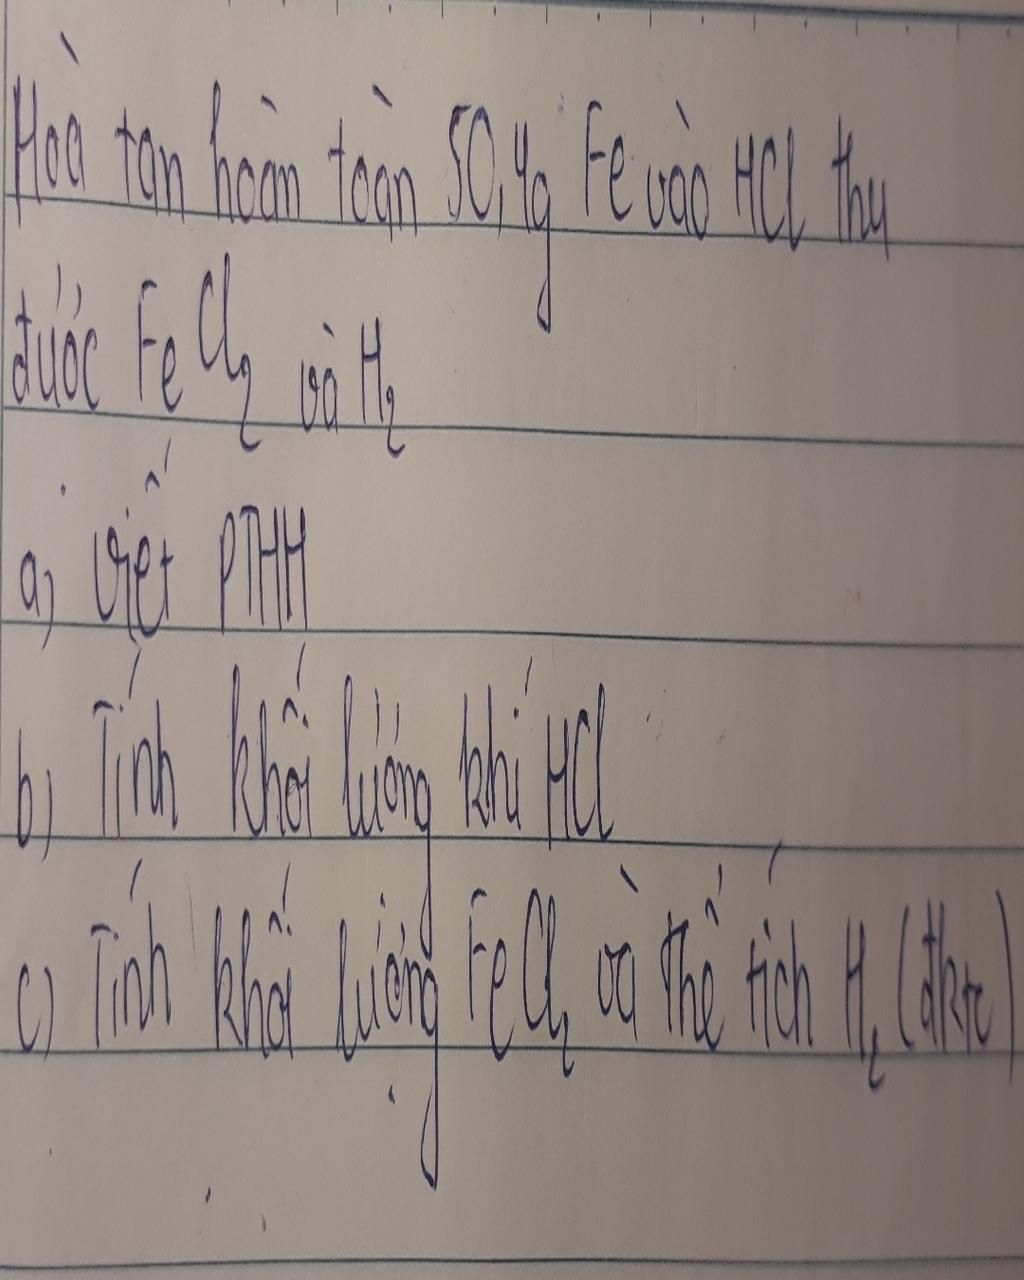 Hòa tan hoàn toàn 50,4g Fe vào HCl thu
được FeCl2 và H2
a) Viết PTHH
b) Tính khối lượng khí HCl
c) Tính khối lượng FeCl2 và thể tích H2 (đktc)